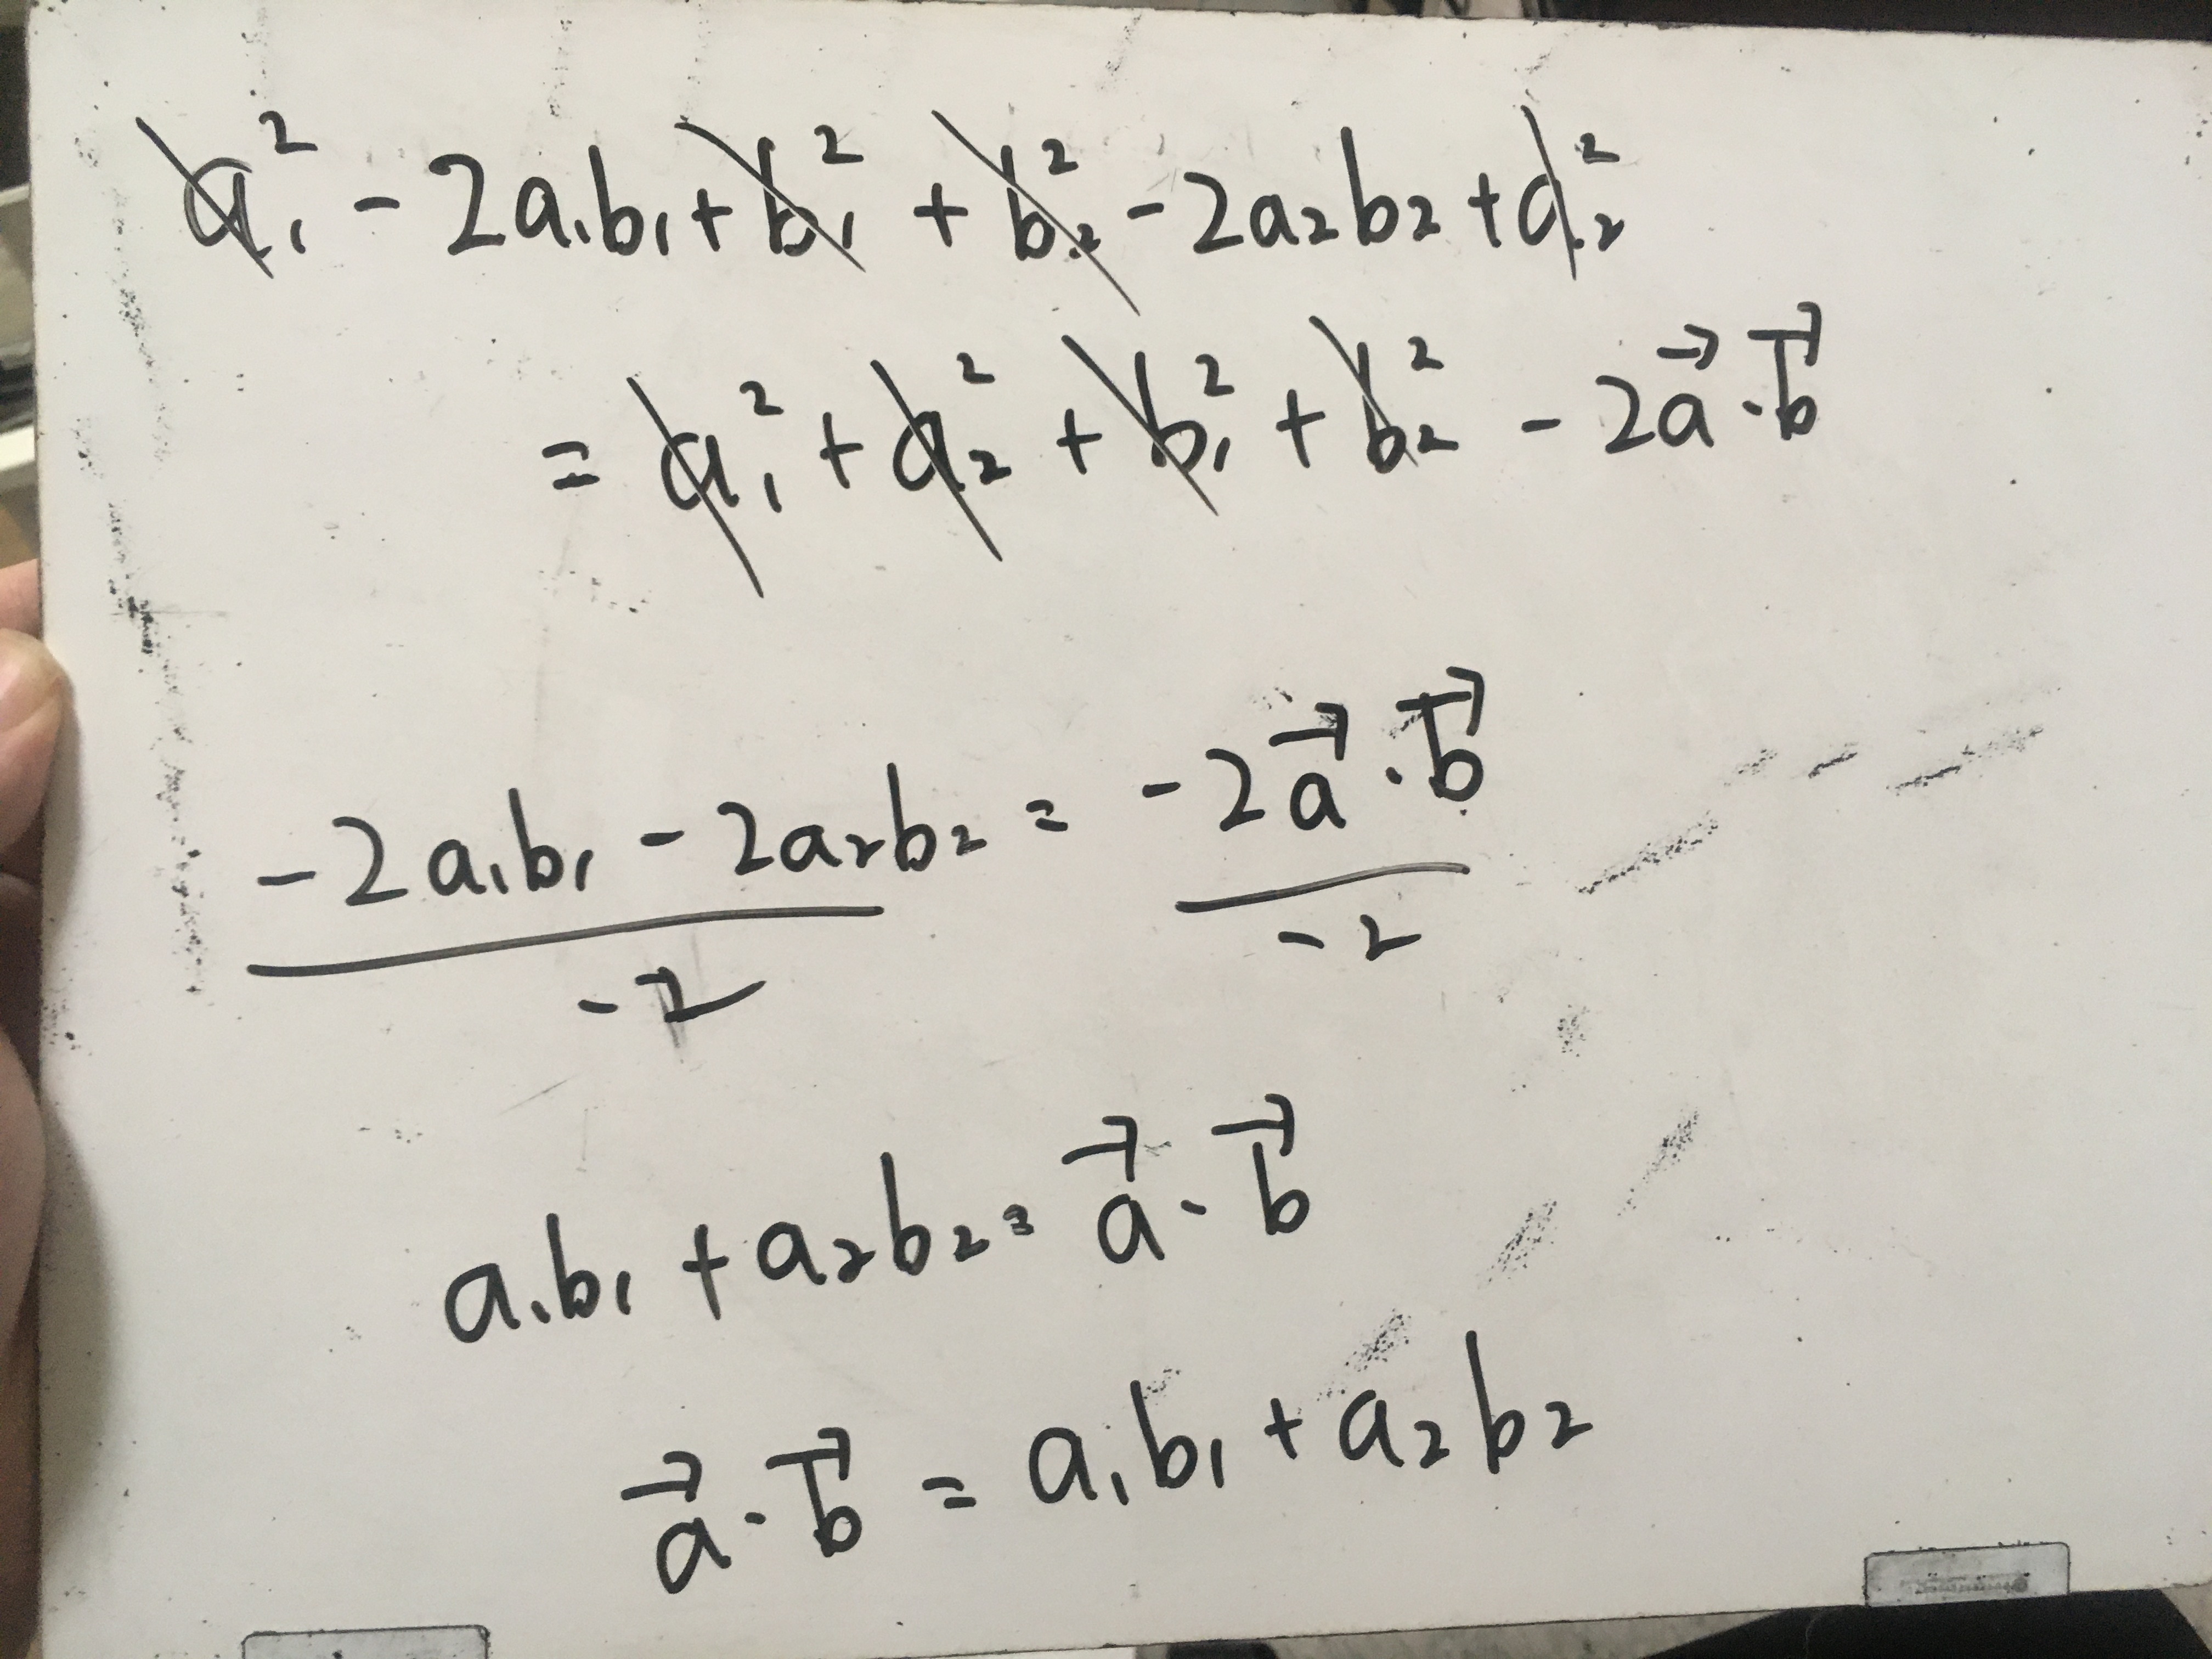 a₁² - 2a₁b₁ + b₁² + b₂² - 2a₂b₂ + a₂²
= a₁² + a₂² + b₁² + b₂² - 2a⃗ · b⃗
-2a₁b₁ - 2a₂b₂ = -2a⃗ · b⃗
-2 -2
a₁b₁ + a₂b₂ = a⃗ · b⃗
a⃗ · b⃗ = a₁b₁ + a₂b₂